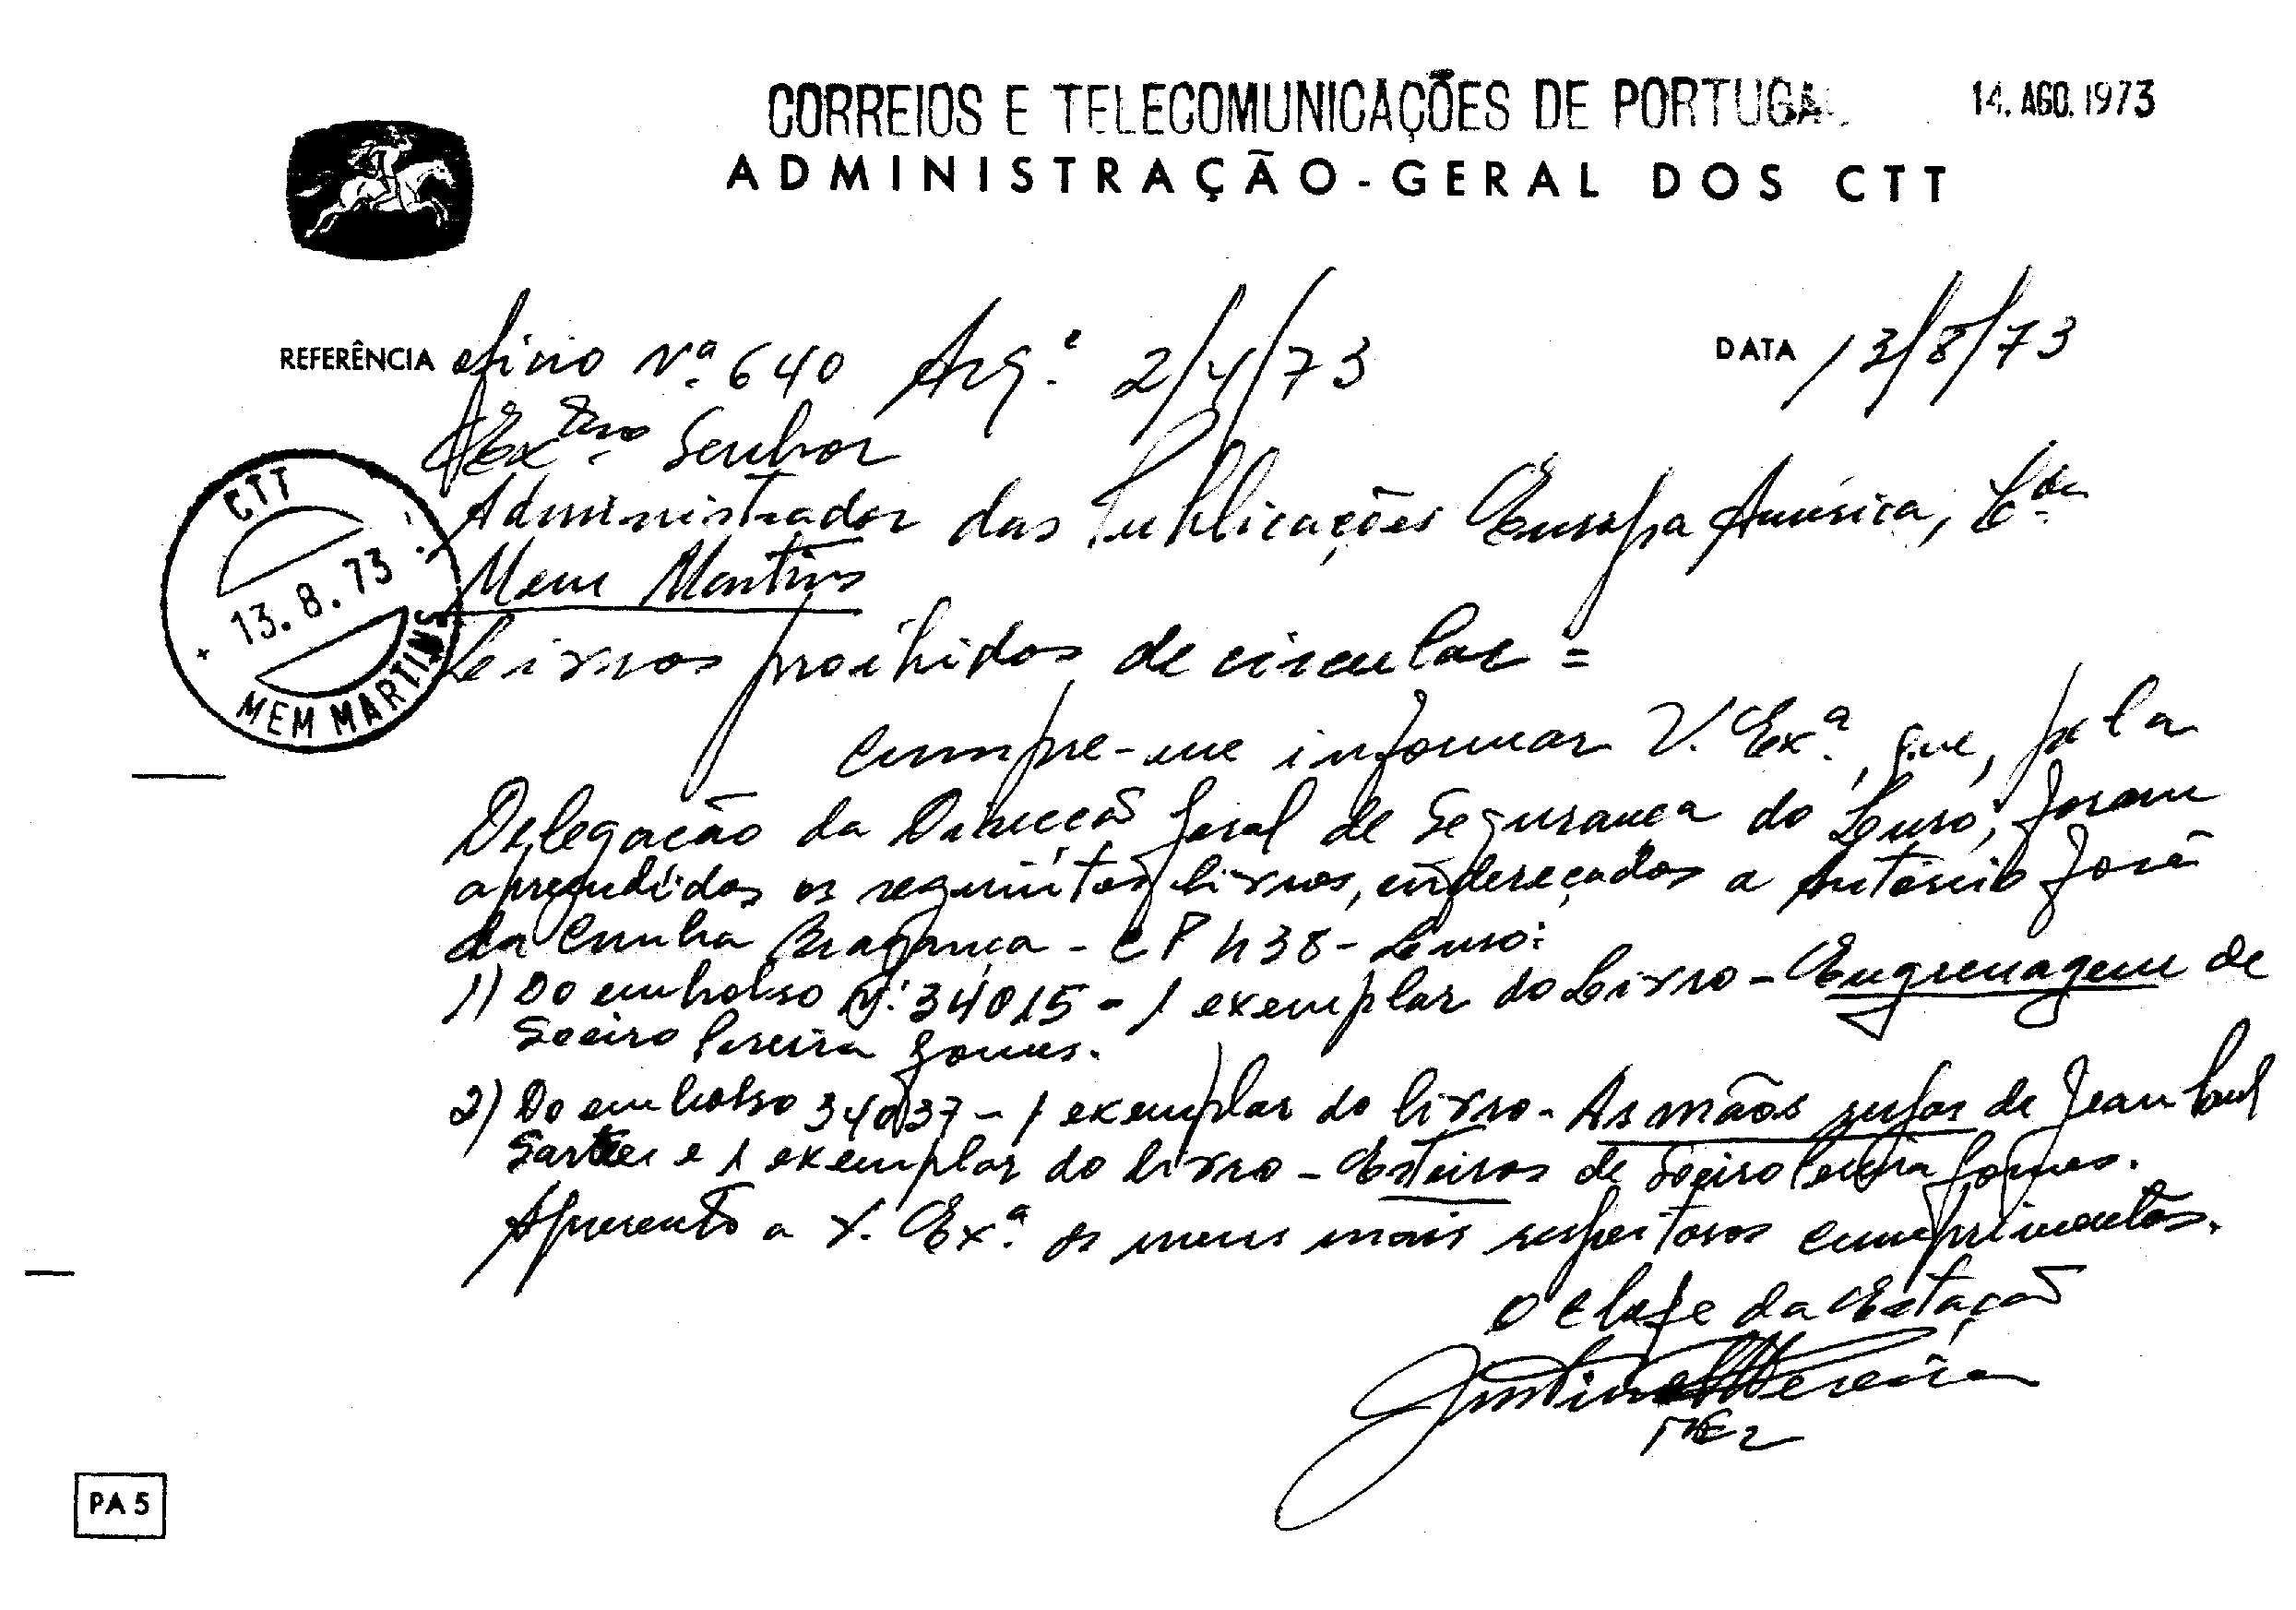 CORREIOS E TELECOMUNICAÇÕES DE PORTUGAL 14. AGO. 1973
ADMINISTRAÇÃO-GERAL DOS CTT
REFERÊNCIA Nº 640 Arqº 2/4/73 DATA 13/8/73
Exmo. Senhor
Administrador das Publicações Europa América, Lda
Mem Martins
CTT
13.8.73
MEM MARTINS
Livros proíbidos de circular =
Cumpre-me informar V. Exª, que, pela
Delegação da Direcção Geral de Segurança do Luso, foram
apreendidos os seguintes livros, endereçados a António José
da Cunha Bragança - CP 438 - Luso:
1) Do embolso Nº 34015 - 1 exemplar do Livro - Engrenagem de
Soeiro Pereira Gomes.
2) Do embolso 34037 - 1 exemplar do livro - As mãos sujas de Jean Paul
Sartre e 1 exemplar do livro - Esteiros de Soeiro Pereira Gomes.
Apresento a V. Exª os meus mais respeitosos cumprimentos.
O Chefe da Estação
PA 5